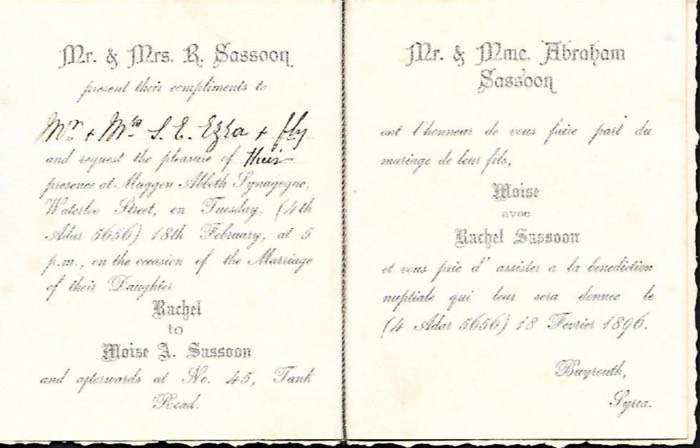 Mr. & Mrs. R. Sassoon
present their compliments to
Mr. & Mrs. S. E. Ezra & fly
and request the pleasure of their
presence at Maggen Abboth Synagogue,
Waterloo Street, on Tuesday, (4th
Adar 5656) 18th February, at 5
p.m., on the occasion of the Marriage
of their Daughter
Rachel
to
Moise A. Sassoon
and afterwards at No. 45, Tank
Road.
Mr. & Mme. Abraham
Sassoon
ont l'honneur de vous faire part du
mariage de leur fils,
Moise
avec
Rachel Sassoon
et vous prie d' assister a la benediction
nuptiale qui leur sera donnee le
(4 Adar 5656) 18 Fevrier 1896.
Bayrouth,
Syrea.